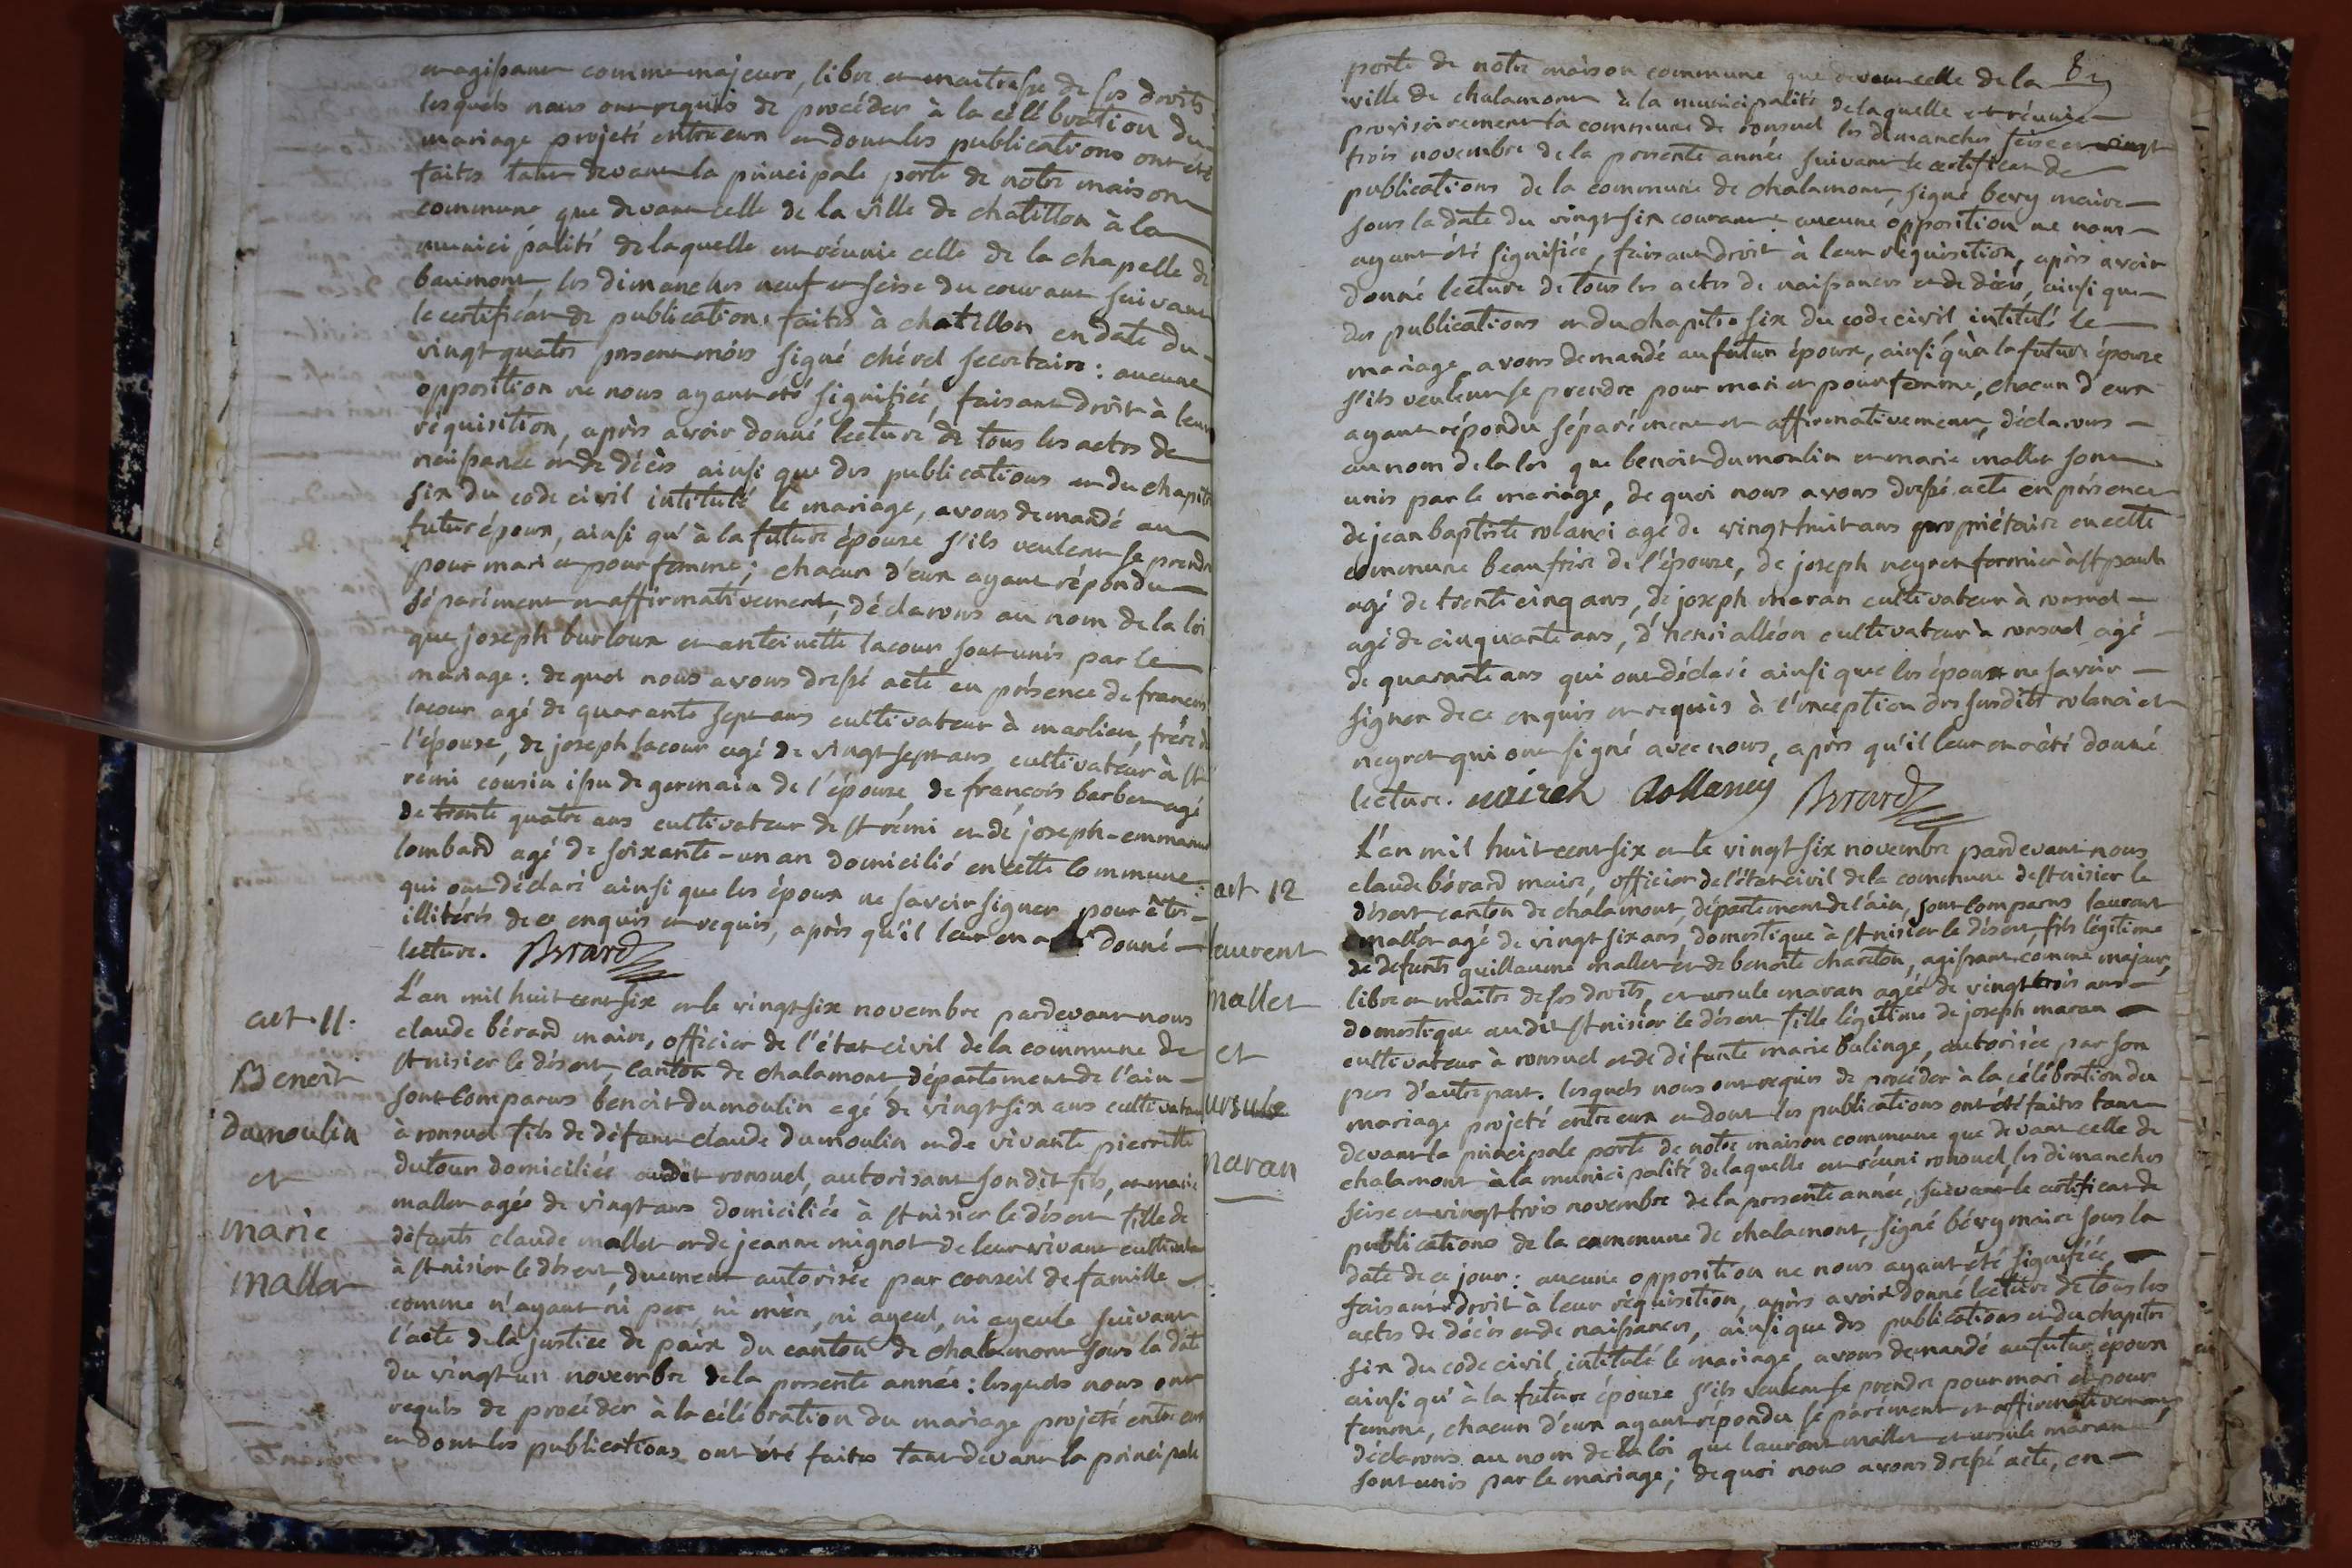 et agissant comme majeure, libre et maitresse de ses droits
lesquels nous ont requis de procéder à la célébration du
mariage projeté entre eux et dont les publications ont été
faites tant devant la principale porte de notre maison
commune que devant celle de la ville de chatillon à la
municipalité de laquelle est réunie celle de la chapelle de
baumont, les dimanches neuf et seise du courant suivant
le certificat de publication, faites à chatillon en date du
vingt quatre present mois signé chérel secretaire : aucune
opposition ne nous ayant été signifiée, faisant droit à leur
réquisition, après avoir donné lecture de tous les actes de
naissance et de décès ainsi que des publications et du chapitre
six du code civil intitulé le mariage, avons demandé au
futur époux, ainsi qu'à la future épouse s'ils veulent se prendre
pour mari et pour femme ; chacun d'eux ayant répondu
séparément et affirmativement, déclarons au nom de la loi
que joseph burloux et antoinette lacour sont unis par le
mariage : de quoi nous avons dressé acte en présence de francois
lacour agé de quarante sept ans cultivateur à marlieu, frère de
l'épouse, de joseph lacour agé de vingt sept ans cultivateur à st
remi cousin issu de germain de l'épouse de francois barbet agé
de trente quatre ans cultivateur de st rémi et de joseph-emmanuel
lombard agé de soixante-un an domicilié en cette commune :
qui ont déclaré ainsi que les époux ne savoir signer pour être
illitérés de ce enquis et requis, après qu'il leur en a été donné
lecture. Bérard
art. 11.
Benoit
dumoulin
et
marie
mallet
L'an mil huit cent six et le vingt six novembre pardevant nous
claude bérard maire, officier de l'état civil de la commune de
st nisier le désert, canton de chalamont, département de l'ain
sont comparus benoit dumoulin agé de vingt six ans cultivateur
à ronsuel fils de défunt claude dumoulin et de vivante pierrette
dutour domiciliée audit ronsuel, autorisant son dit fils, et marie
mallet agée de vingt ans domiciliée à st nisier le désert fille de
défunts claude mallet et de jeanne mignot de leur vivant cultivateurs
à st nisier le désert, duement autorisée par conseil de famille
comme n'ayant ni pere, ni mère, ni ayeul, ni ayeule suivant
l'acte de la justice de paix du canton de chalamont sous la date
du vingt un novembre de la presente année : lesquels nous ont
requis de procéder à la célébration du mariage projeté entre eux
et dont les publications ont été faites tant devant la principale
8
porte de notre maison commune que devant celle de la
ville de chalamont à la municipalité de laquelle est réunie
provisoirement la commune de ronsuel les dimanches seise et vingt
trois novembre de la presente année suivant le certificat de
publications de la commune de chalamont, signé bevy maire
sous la date du vingt six courant : aucune opposition ne nous
ayant été signifiée, faisant droit à leur réquisition, après avoir
donné lecture de tous les actes de naissances et de décès, ainsi que
des publications et du chapitre six du code civil intitulé le
mariage avons demandé au futur époux, ainsi qu'à la future épouse
s'ils veulent se prendre pour mari et pour femme, chacun d'eux
ayant répondu séparément et affirmativement, déclarons
au nom de la loi que benoit dumoulin et marie mallet sont
unis par le mariage, de quoi nous avons dressé acte en présence
de jean baptiste rolanci agé de vingt huit ans propriétaire en cette
commune beau frère de l'épouse, de joseph neyret fermier à st paul
agé de trente cinq ans, de joseph maran cultivateur à ronsuel
agé de cinquante ans, d'henri alléon cultivateur à ronsuel agé
de quarante ans qui ont déclaré ainsi que les époux ne savoir
signer de ce enquis et requis à l'exception des susdits rolanci et
neyret qui ont signé avec nous, après qu'il leur en a été donné
lecture. Rollancy Bérard
art 12
laurent
mallet
et
ursule
maran
L'an mil huit cent six et le vingt six novembre pardevant nous
claude bérard maire, officier de l'état civil de la commune de st nisier le
désert canton de chalamont, département de l'ain, sont comparus laurent
mallet agé de vingt six ans, domestique à st nisier le désert, fils légitime
de defunts guillaume mallet et de benoite chareton, agissant comme majeur,
libre et maitre de ses droits, et ursule maran agée de vingt trois ans
domestique au dit st nisier le désert fille légitime de joseph maran
cultivateur à ronsuel et de défunte marie bulinge, autorisée par son
pere d'autre part. lesquels nous ont requis de procéder à la célébration du
mariage projeté entre eux et dont les publications ont été faites tant
devant la principale porte de notre maison commune que devant celle de
chalamont à la municipalité de laquelle est réuni ronsuel, les dimanches
seise et vingt trois novembre de la presente année, suivant le certificat de
publications de la commune de chalamont, signé bévy maire sous la
date de ce jour : aucune opposition ne nous ayant été signifiée
faisant droit à leur réquisition, après avoir donné lecture de tous les
actes de décès et de naissances, ainsi que des publications et du chapitre
six du code civil intitulé le mariage, avons demandé au futur époux
ainsi qu'à la future épouse s'ils veulent se prendre pour mari et pour
femme, chacun d'eux ayant répondu séparément et affirmativement
déclarons au nom de la loi que laurent mallet et ursule maran
sont unis par le mariage ; de quoi nous avons dressé acte, en